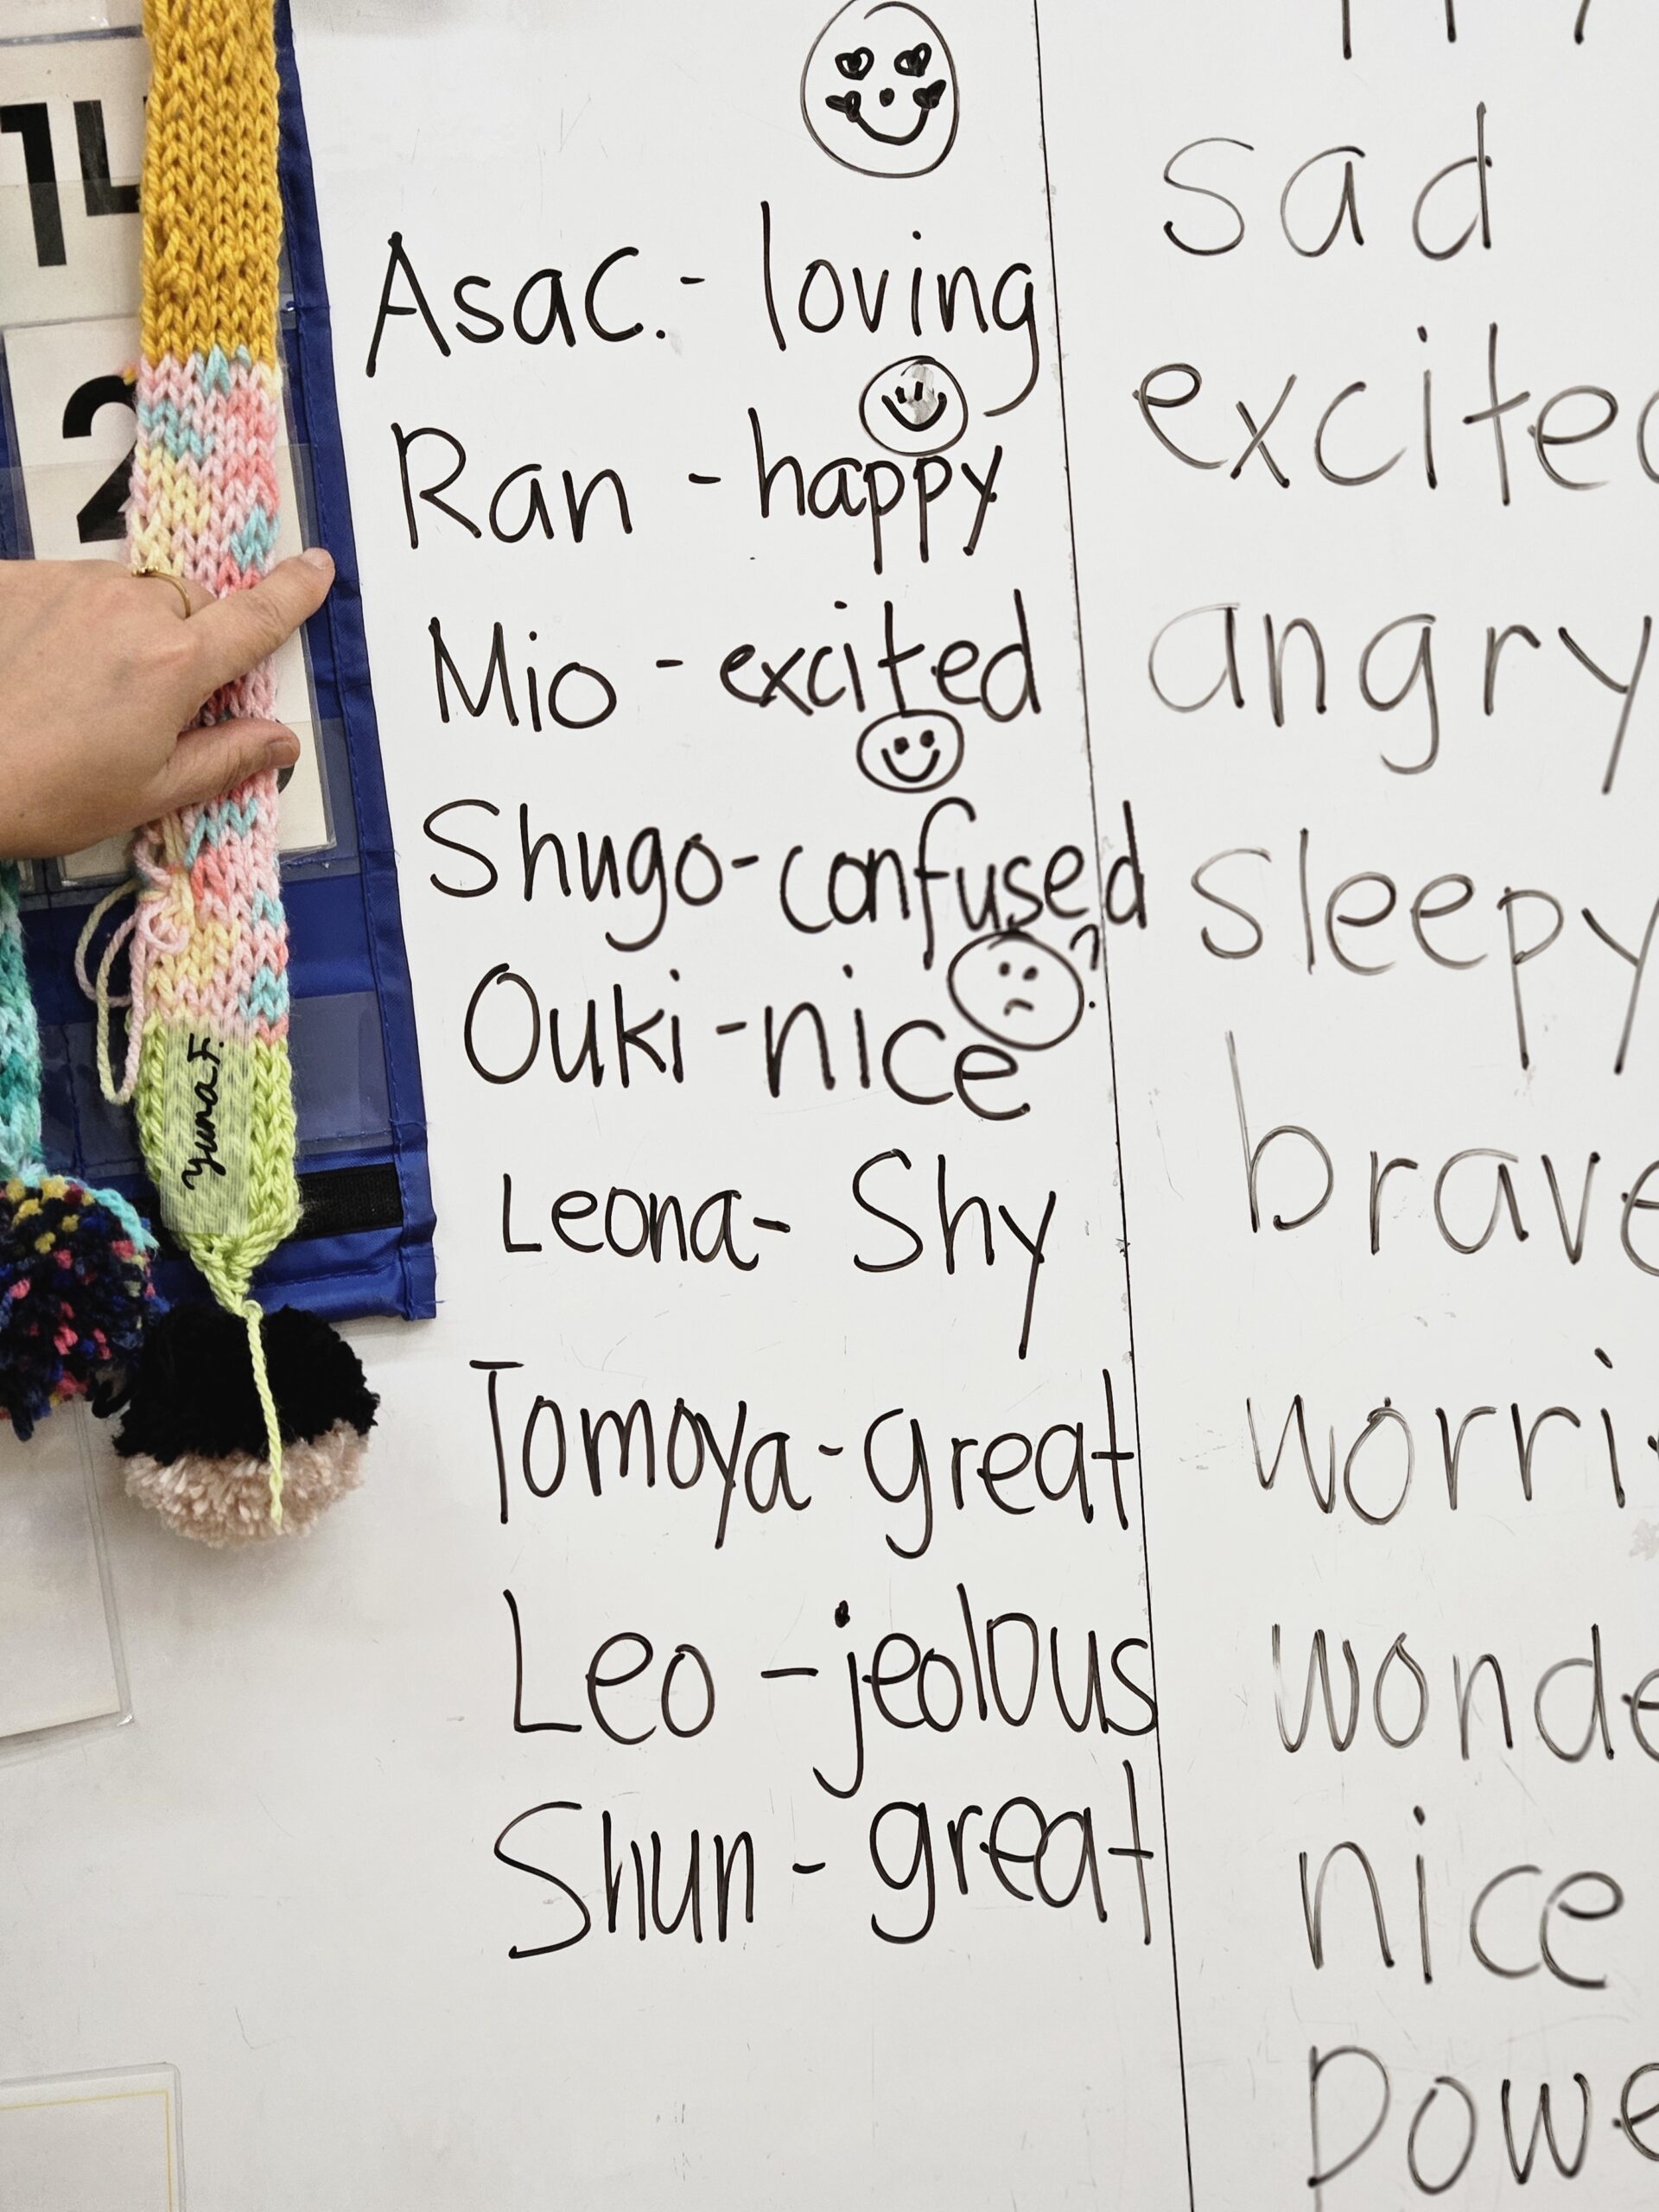 14
2
Yuna.F.
Asa C. - loving
Ran - happy
Mio - excited
Shugo - confused
?
Ouki - nice
Leona - Shy
Tomoya - great
Leo - jeolous
Shun - great
sad
excited
angry
sleepy
brave
nice